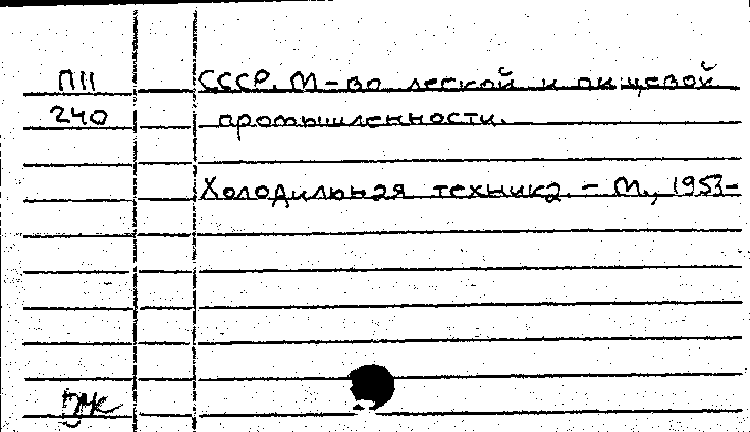 П11 СССР. М-во легкой и пищевой
240 промышленности.
Холодильная техника. - М., 1953-